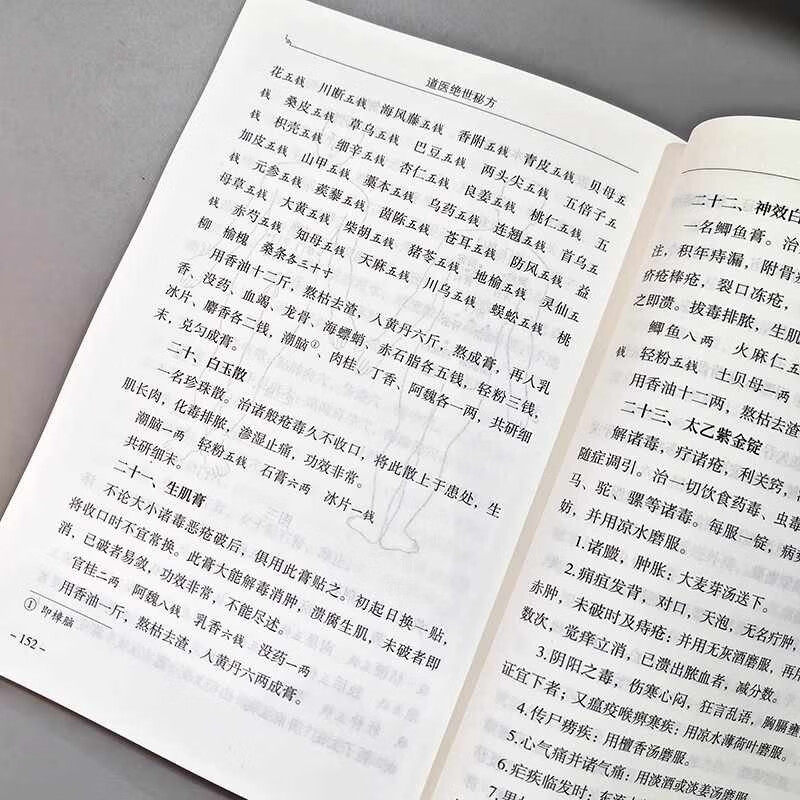 道医绝世秘方
花五钱 川断五钱 海风藤五钱 香附五钱 青皮五钱 贝母五
钱 桑皮五钱 草乌五钱 巴豆五钱 两头尖五钱 五倍子五
钱 枳壳五钱 细辛五钱 杏仁五钱 良姜五钱 桃仁五钱 五
加皮五钱 山甲五钱 藁本五钱 乌药五钱 连翘五钱 首乌五
钱 元参五钱 蒺藜五钱 茵陈五钱 苍耳五钱 防风五钱 益
母草五钱 大黄五钱 柴胡五钱 猪苓五钱 地榆五钱 灵仙五
钱 赤芍五钱 知母五钱 天麻五钱 川乌五钱 蜈蚣五钱 桃
柳 榆槐 桑条各三十寸
用香油十二斤，熬枯去渣，入黄丹六斤。熬成膏，再入乳
香、没药、血竭、龙骨、海螵蛸、赤石脂各五钱，轻粉三钱、
冰片、麝香各二钱，潮脑①、肉桂、丁香、阿魏各一两，共研细
末，兑匀成膏。
二十、白玉散
一名珍珠散。治诸般疮毒久不收口，将此散上于患处，生
肌长肉，化毒排脓，渗湿止痛，功效非常。
潮脑一两 轻粉五钱 石膏六两 冰片一钱
共研细末。
二十一、生肌膏
不论大小诸毒恶疮破后，俱用此膏贴之。初起日换一贴，
将收口时不宜常换。此膏大能解毒消肿，溃腐生肌，未破者即
消，已破者易敛，功效非常，不能尽述。
官桂二两 阿魏八钱 乳香六钱 没药一两
用香油一斤，熬枯去渣，入黄丹六两成膏。
① 即樟脑
- 152 -
二十二、神效白
一名鲫鱼膏。治
注，积年痔漏，附骨
疥疮棒疮，裂口冻疮，
之即溃。拔毒排脓，生肌
鲫鱼八两 火麻仁
钱 轻粉五钱 土贝母一两
用香油十二两，熬枯去
二十三、太乙紫金锭
解诸毒，疗诸疮，利关窍，
随症调引。治一切饮食药毒、虫毒
马、驼、骡等诸毒。每服一锭，病
妨，并用凉水磨服。
1.诸臌，肿胀：大麦芽汤送下。
2.痈疽发背，对口，天泡，无名疔肿，
赤肿，未破时及痔疮：并用无灰酒磨服，再用
数次，觉痒立消，已溃出脓血者，减分数。
3.阴阳之毒，伤寒心闷，狂言乱语，胸膈壅
证宜下者；又瘟疫喉痹寒疾：用凉水薄荷叶磨服。
4.传尸痨疾：用檀香汤磨服。
5.心气痛并诸气痛：用淡酒或淡姜汤磨服。
6.疟疾临发时：东流